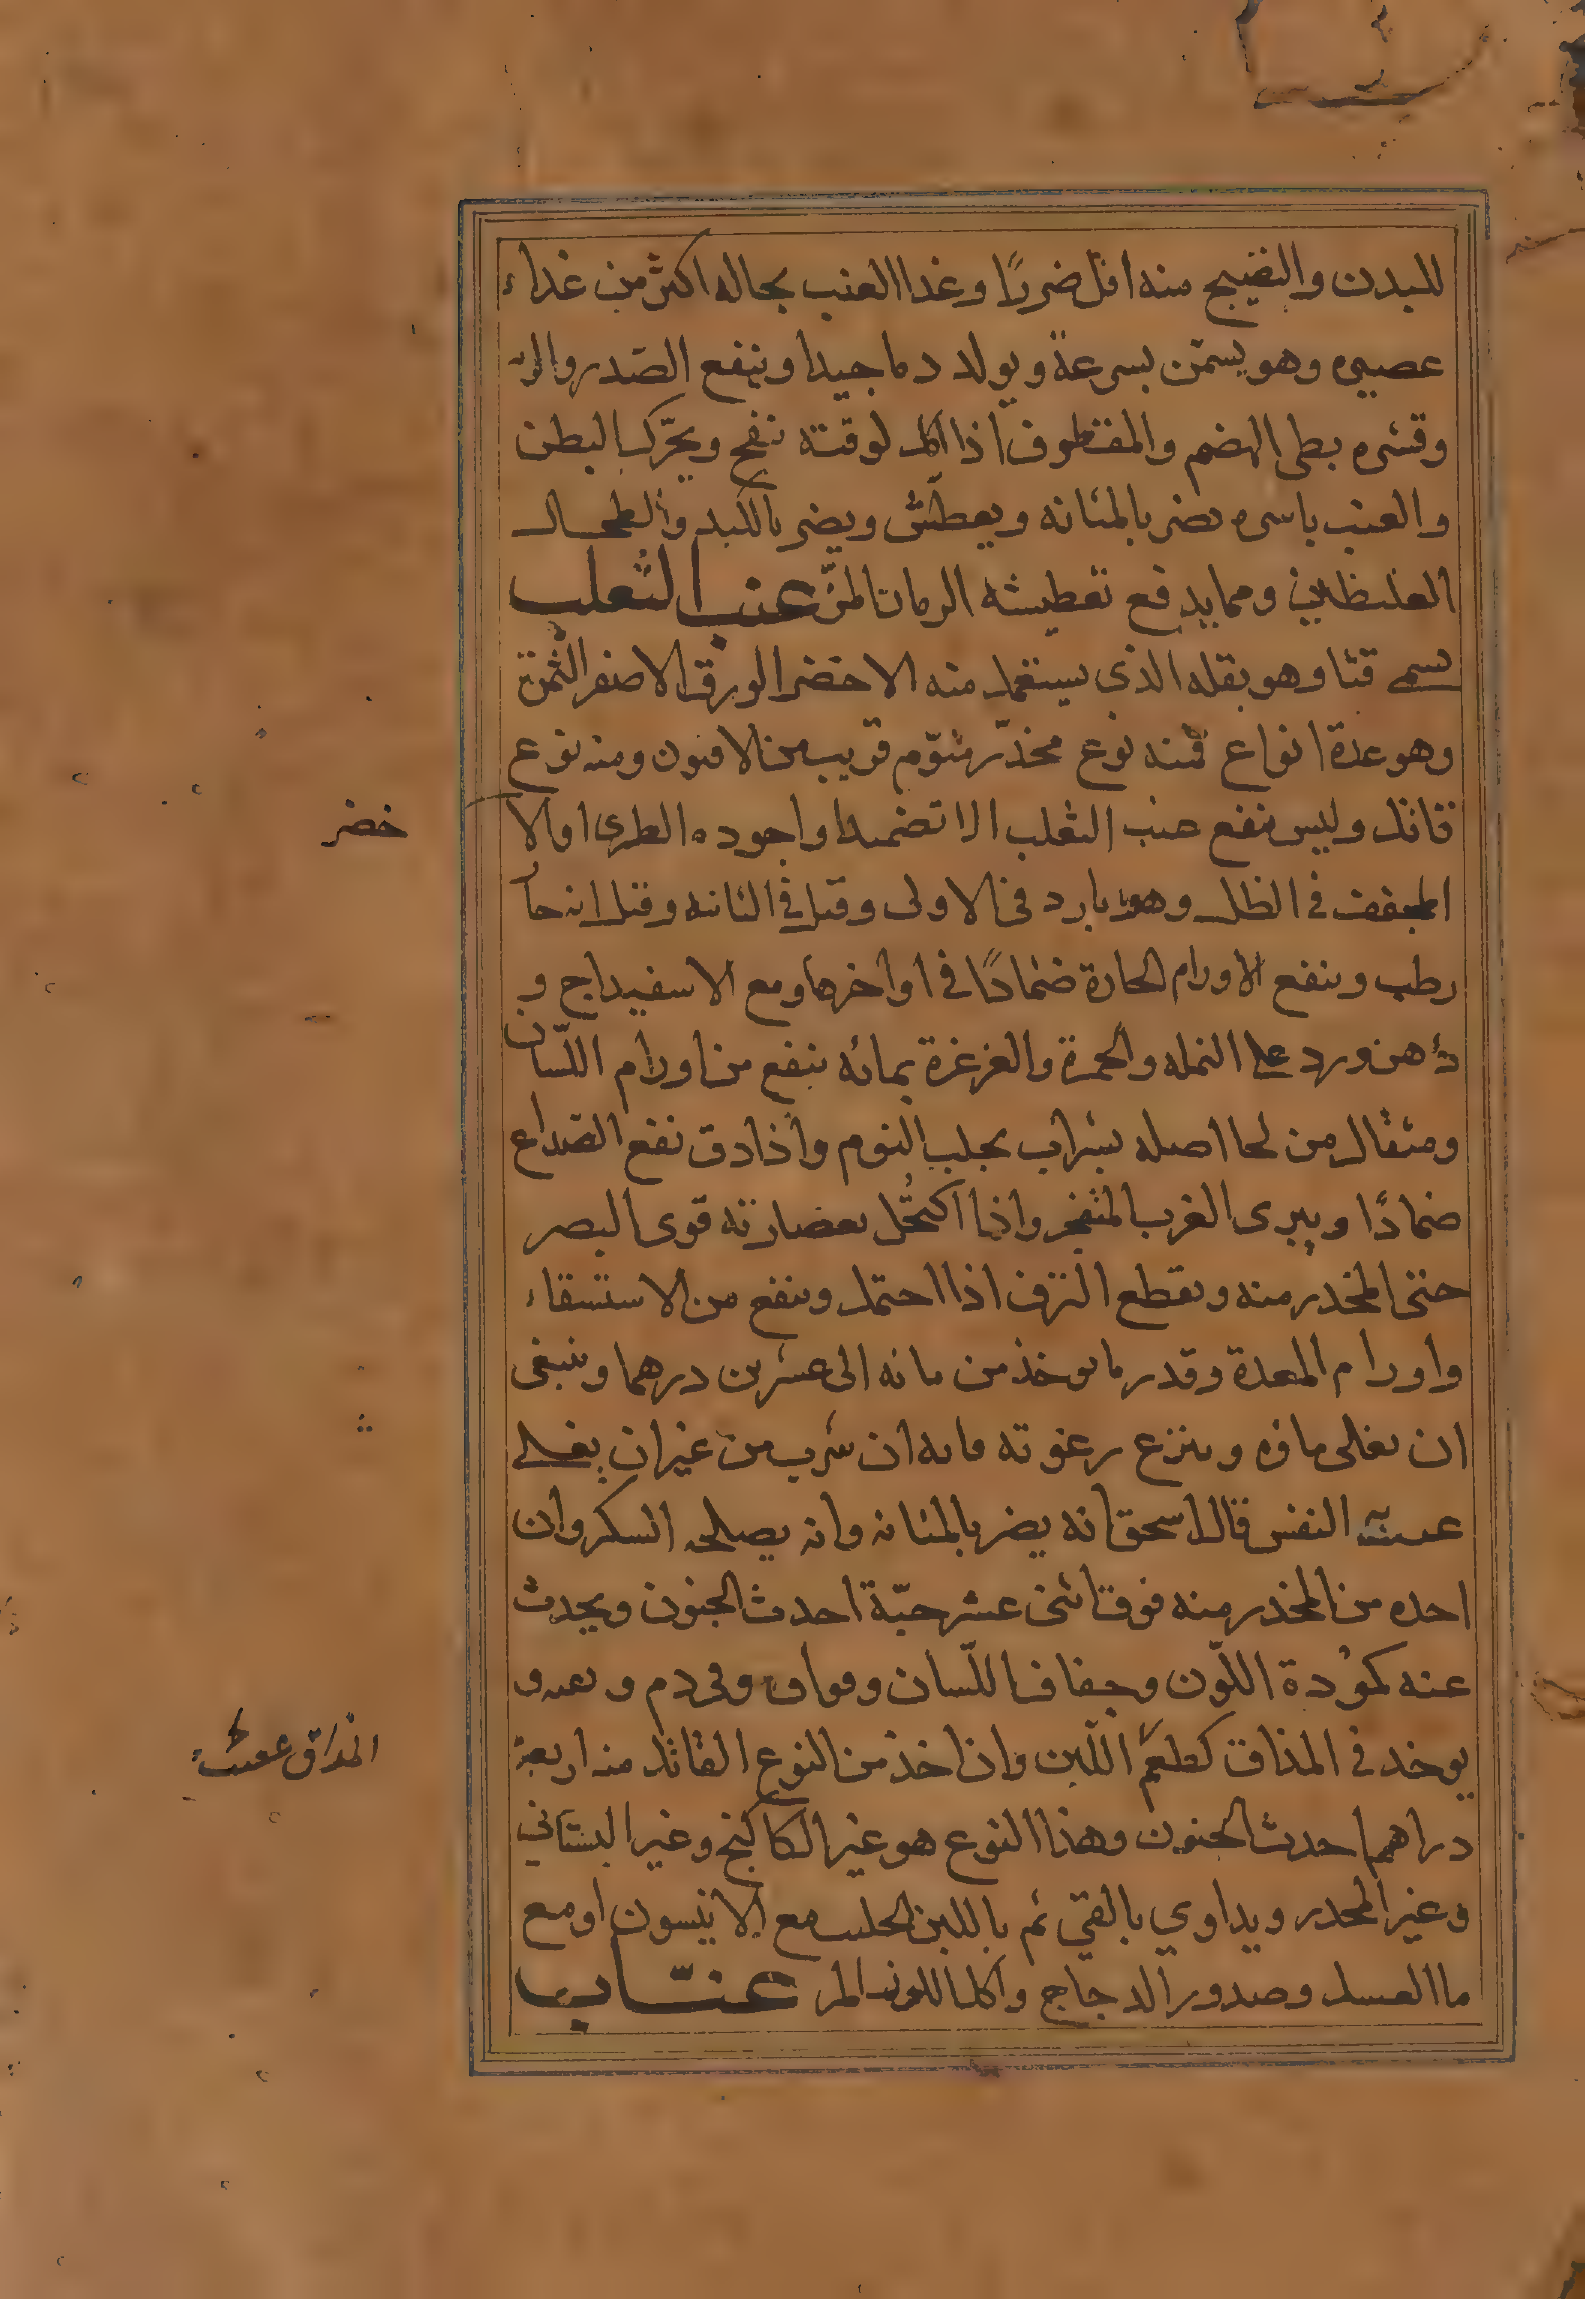 للبدن والنضيج منه اقل ضررًا وغذا العنب بحاله اكثر من غذاء
عصيره وهو يسمّن بسرعة ويولد دما جيدا وينفع الصّدر والريه
وقشره بطى الهضم والمقطوف اذا اكل لوقته نفخ ويحرّك البطن
والعنب باسره يضر بالمثانه ويعطّش ويضر بالكبد والطحال
الغليظين ومما يدفع تعطيشه الرمان المزّ عنب الثعلب
يسمى قثا وهو بقله الذى يستعمل منه الاخضر الورق الاصفر الثمرة
وهو عدة انواع فمنه نوع مخدّر منوّم قريب من الافيون ومنه نوع
قاتل وليس ينفع عنب الثعلب الا تضميدا واجوده الطرى او الا
خضر
المجفف فى الظل وهو بارد فى الاولى وقيل فى الثانيه وقيل انه حار
رطب وينفع الاورام الحارة ضمادًا فى اواخرها ومع الاسفيداج و
دهن ورد على النمله والحمرة والغرغرة بمائه ينفع من اورام اللّسان
ومثقال من لحا اصله بشراب يجلب النوم واذا دق نفع الصّداع
ضمادًا ويبرى الغرب المنفجر واذا اكتحُل بعصارته قوى البصر
حتى المخدر منه ويقطع النزف اذا احتمل وينفع من الاستسقاء
واورام المعدة وقدر ما يوخذ من مائه الى عشرين درهما وينبغى
ان يغلى ماؤه وينزع رغوته فانه ان شرب من غير ان يغلى
النفس قال اسحق انه يضر بالمثانه وانه يصلحه السكر وان
اخذ من المخدر منه فوق اثنى عشر حبّة احدث الجنون ويحدث
عنه كمُودة اللّون وجفاف اللّسان وفواق وقى دم
يوخد فى المذاق كطعم اللّبن وان اخذ من النوع القاتل منه اربعة
المذاق
دراهم احدث الجنون وهذا النوع هو غير الكاكنج وغير البستاني
وغير المخدر ويداوي بالقي ثم باللبن الحليب مع الانيسون او مع
ما العسل وصدور الدجاج واكل اللوز المر عنّاب